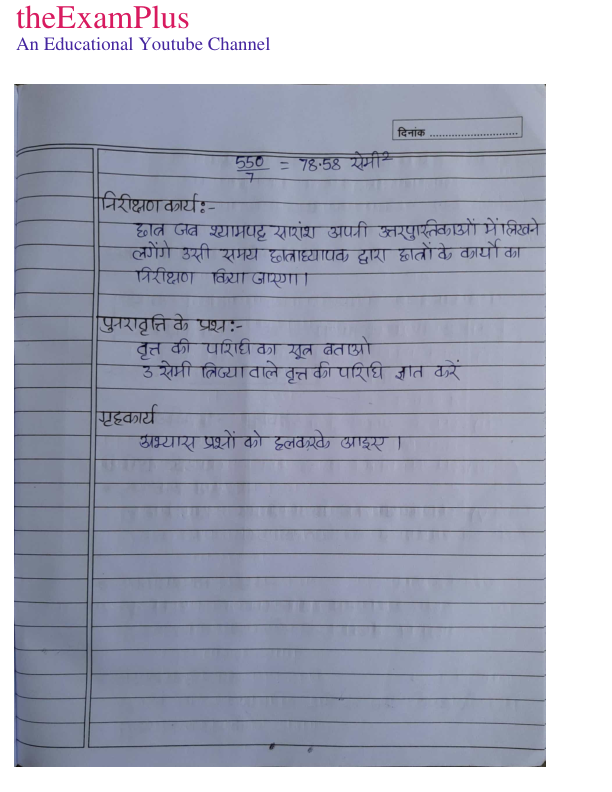 theExamPlus
An Educational Youtube Channel
दिनांक ............................
550/7 = 78.58 सेमी²
निरीक्षण कार्य :-
छात्र जब श्यामपट्ट सारांश अपनी उत्तरपुस्तिकाओं में लिखने
लगेंगे उसी समय छात्राध्यापक द्वारा छात्रों के कार्यों का
निरीक्षण किया जाएगा।
पुनरावृत्ति के प्रश्न :-
वृत्त की परिधि का सूत्र बताओ
3 सेमी त्रिज्या वाले वृत्त की परिधि ज्ञात करें
गृहकार्य
अभ्यास प्रश्नों को हलकरके आइए ।